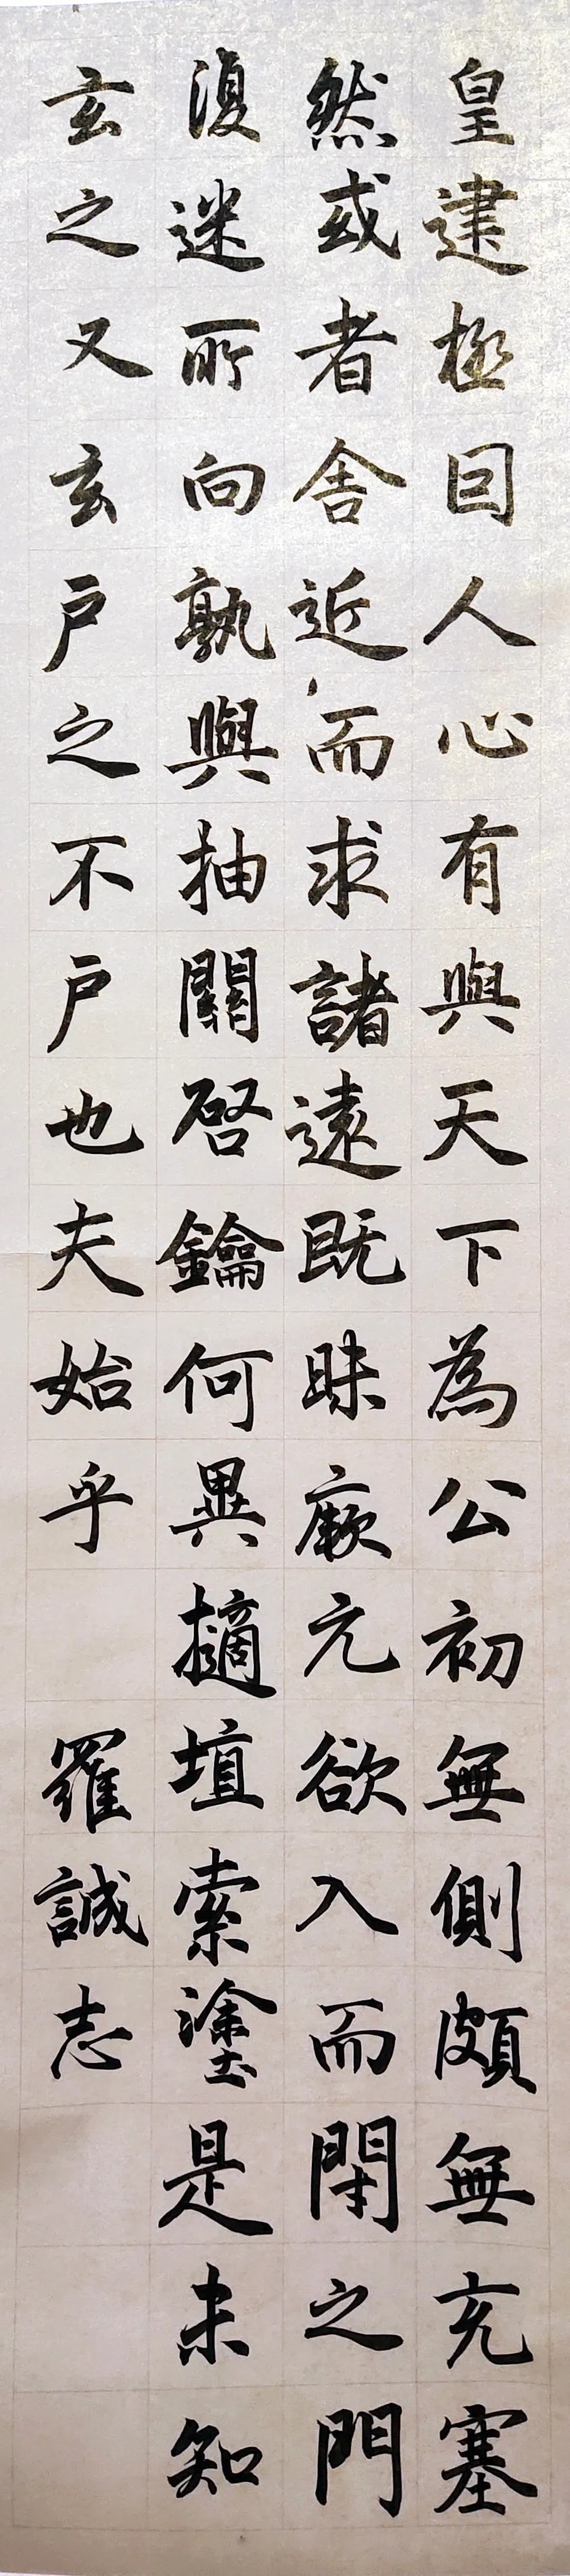 皇建極回人心有與天下為公初無側頗無充塞
然或者舍近而求諸遠既昧厥元欲入而閉之門
復迷所向孰與抽關啓鑰何異擿埴索塗是未知
玄之又玄户之不户也夫始乎 羅誠志